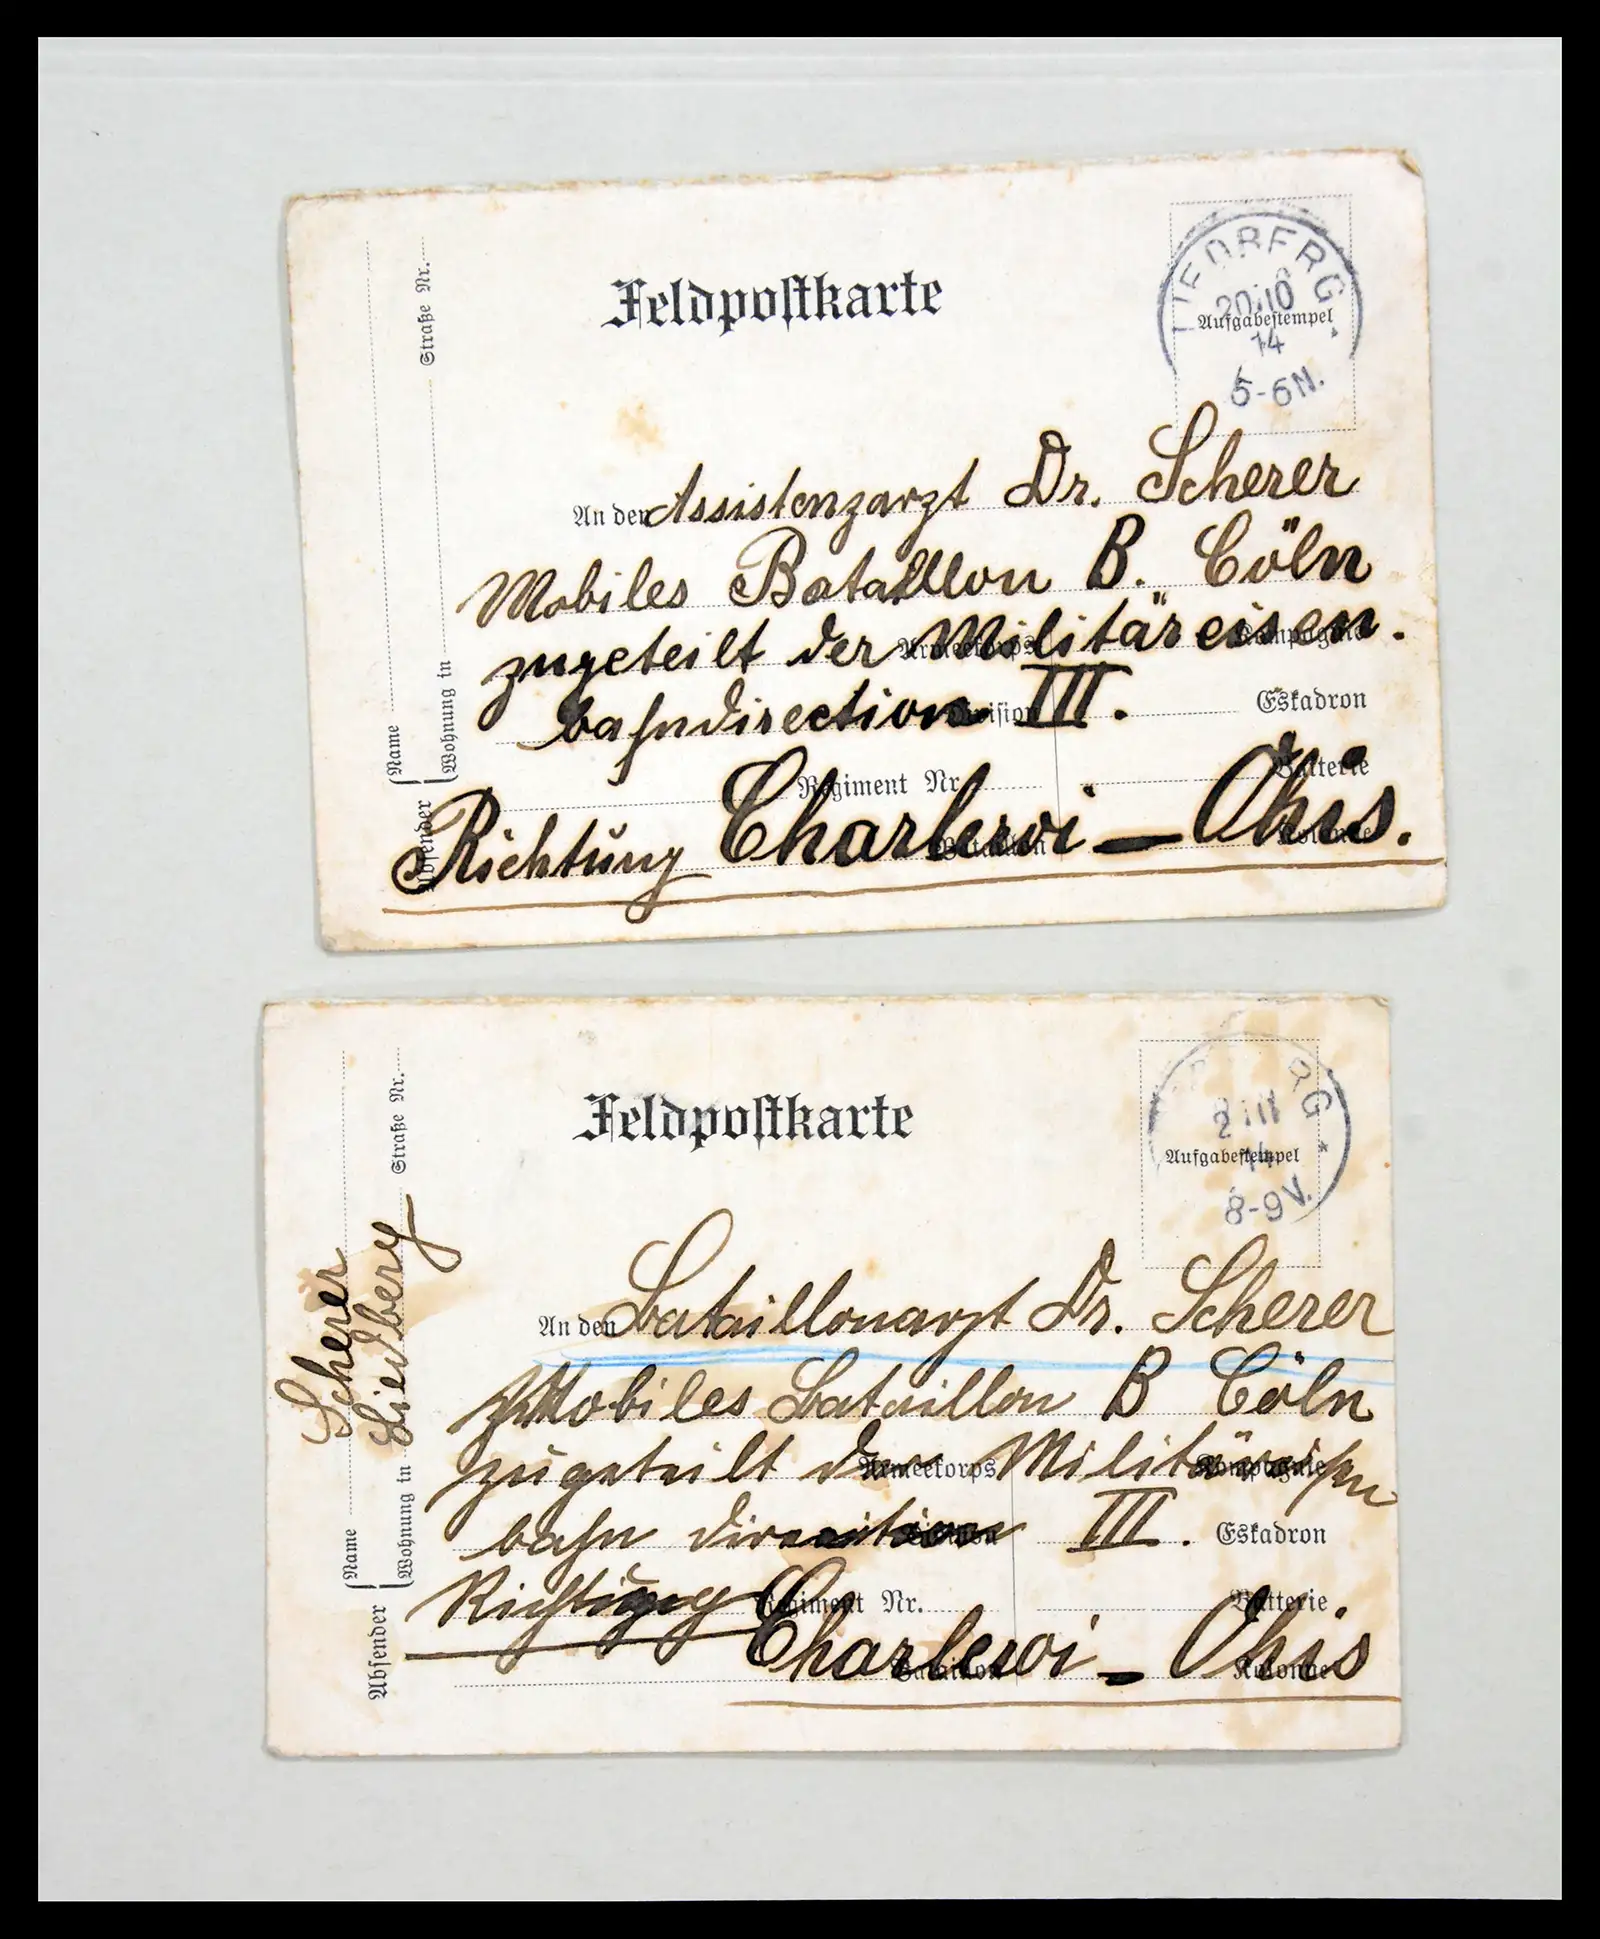 Feldpostkarte
LIEDBERG
20.10
14
5-6N.
Aufgabestempel
Straße Nr.
Wohnung in
Name
Absender
An den Assistenzarzt Dr. Scherer
Mobiles Bataillon B. Cöln
zugeteilt der Militäreisen.
Armeekorps Kompagnie
bahndirection III.
Division Eskadron
Regiment Nr. Batterie
Richtung Charleroi - Ohis.
Bataillon Kolonne
Feldpostkarte
RG
2.11
14
8-9V.
Aufgabestempel
Straße Nr.
Wohnung in Liedberg
Name Scherer
Absender
An den Bataillonarzt Dr. Scherer
Mobiles Bataillon B Cöln
zugeteilt der Militäreisen
Armeekorps Kompagnie
bahn direction III.
Division Eskadron
Richtung
Regiment Nr. Batterie
Charleroi - Ohis
Bataillon Kolonne